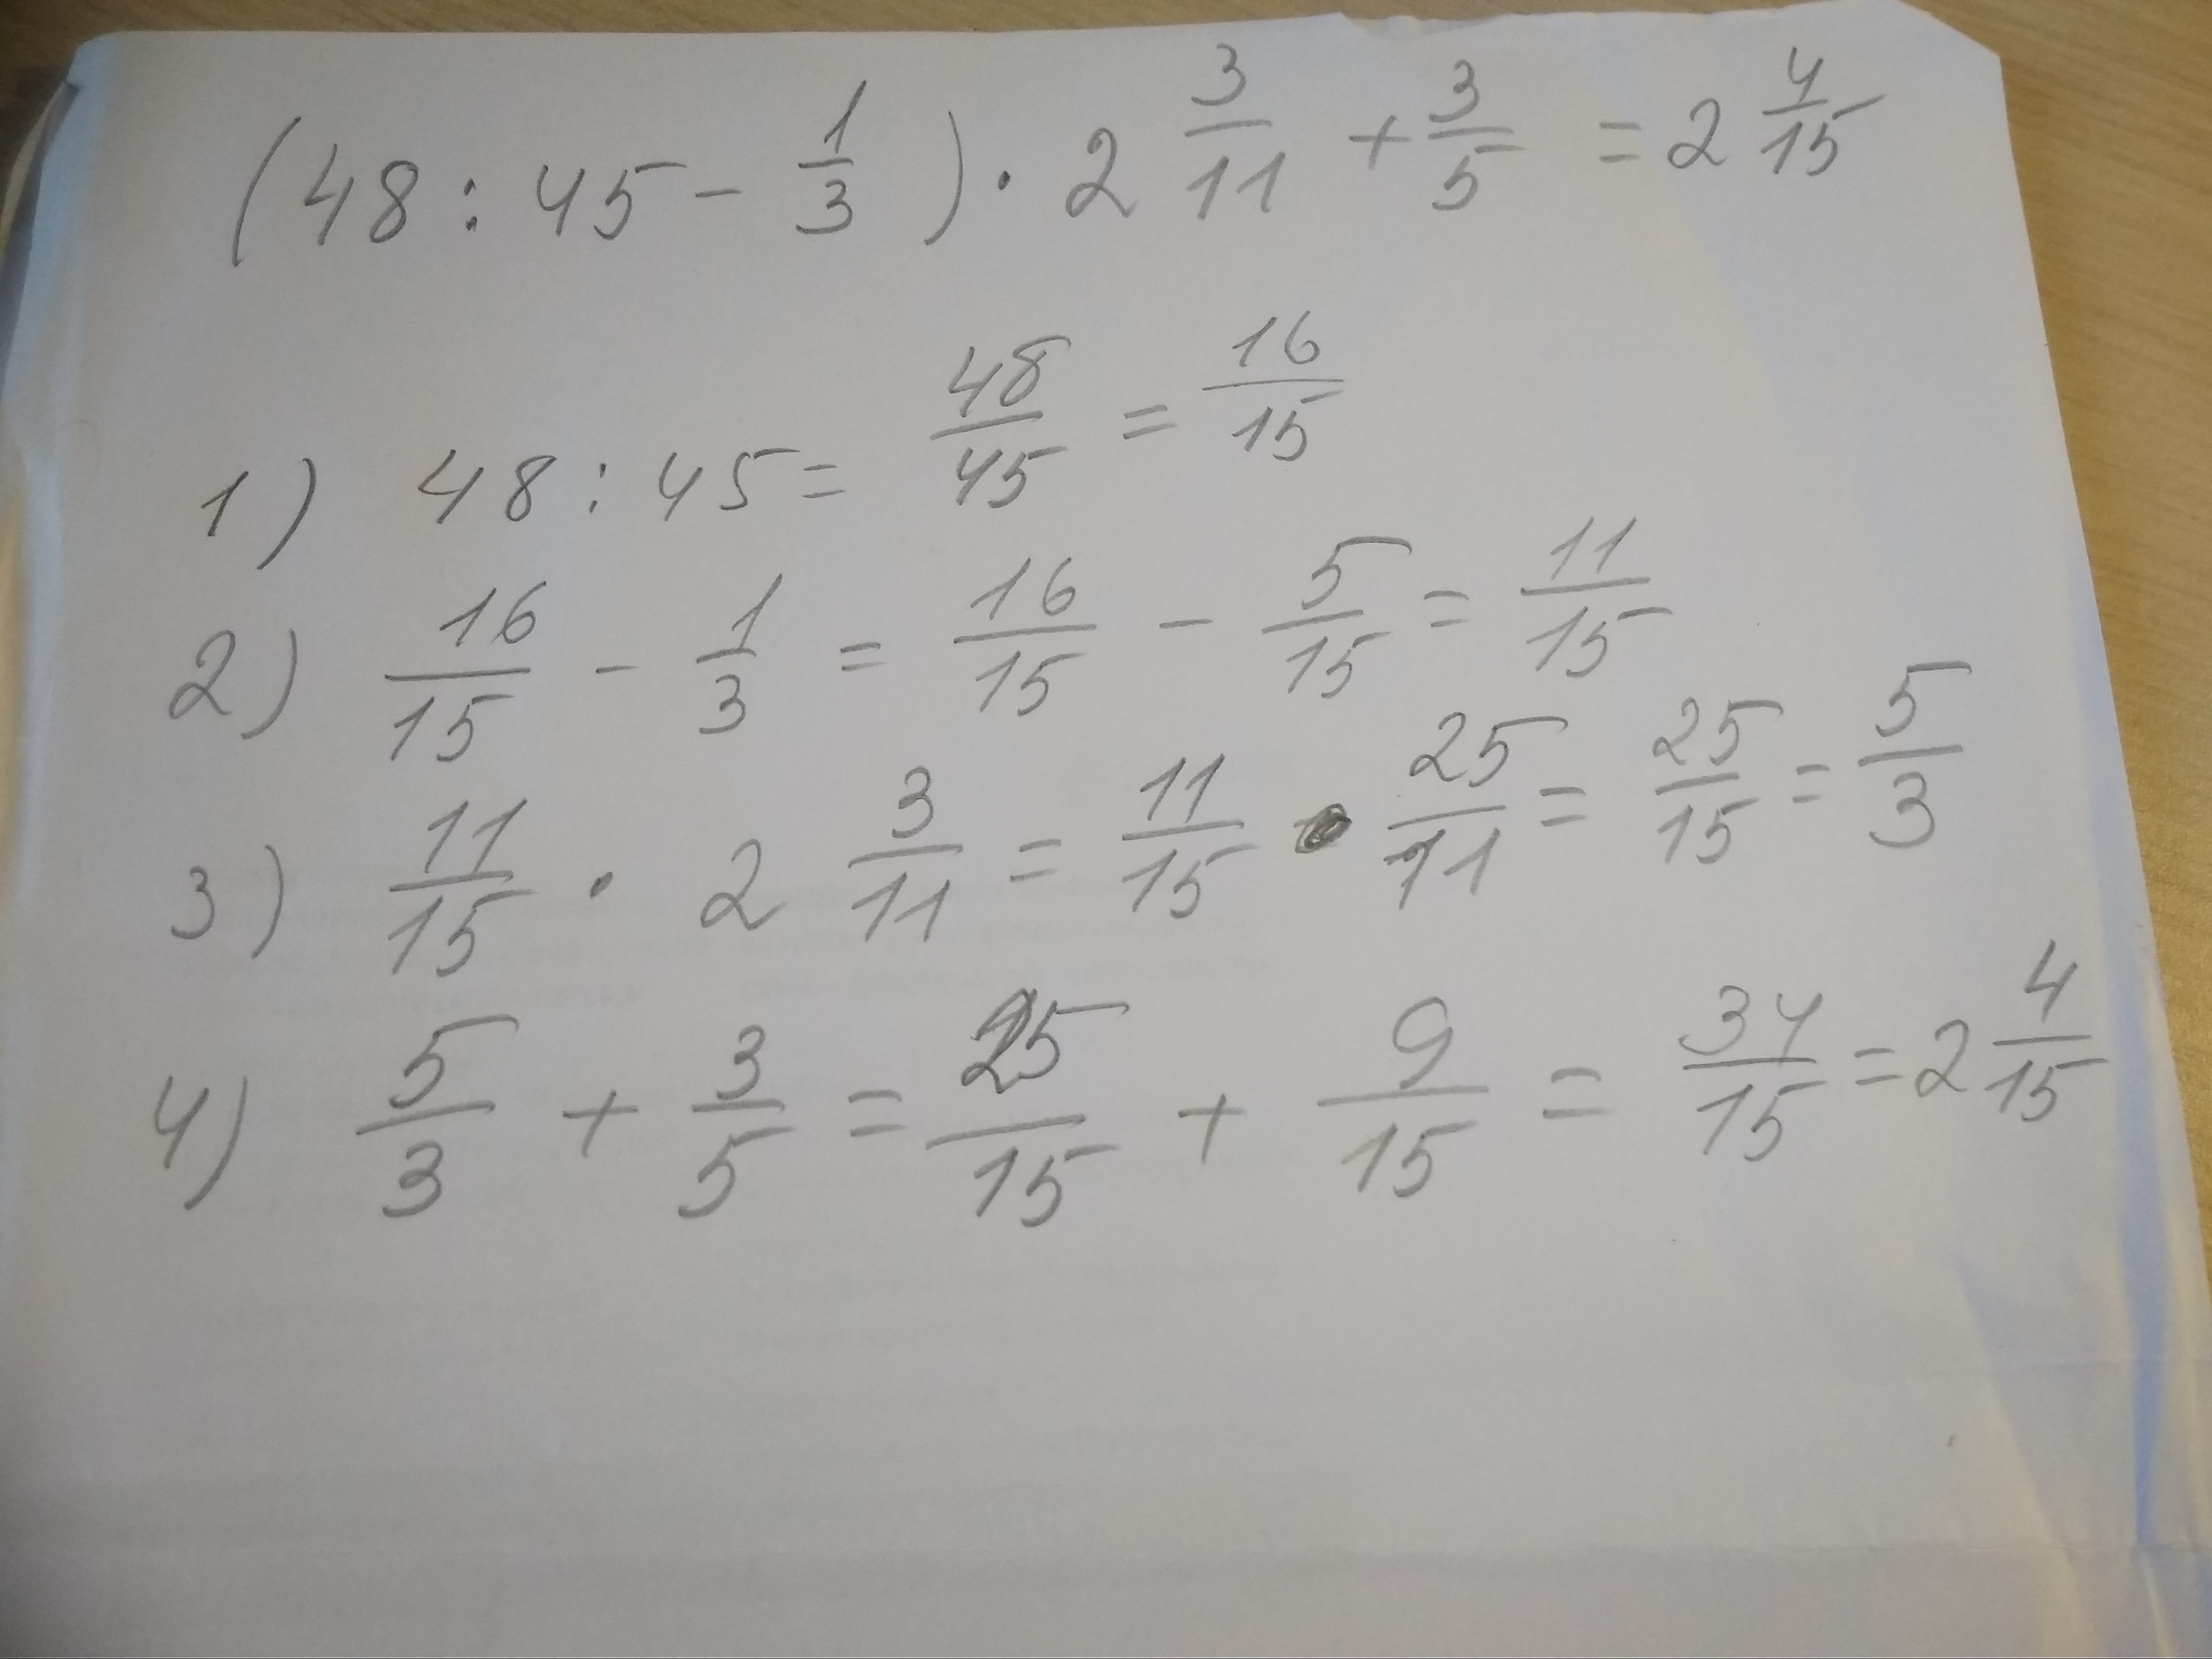 (48 : 45 - 1/3) · 2 3/11 + 3/5 = 2 4/15
1) 48 : 45 = 48/45 = 16/15
2) 16/15 - 1/3 = 16/15 - 5/15 = 11/15
3) 11/15 · 2 3/11 = 11/15 · 25/11 = 25/15 = 5/3
4) 5/3 + 3/5 = 25/15 + 9/15 = 34/15 = 2 4/15